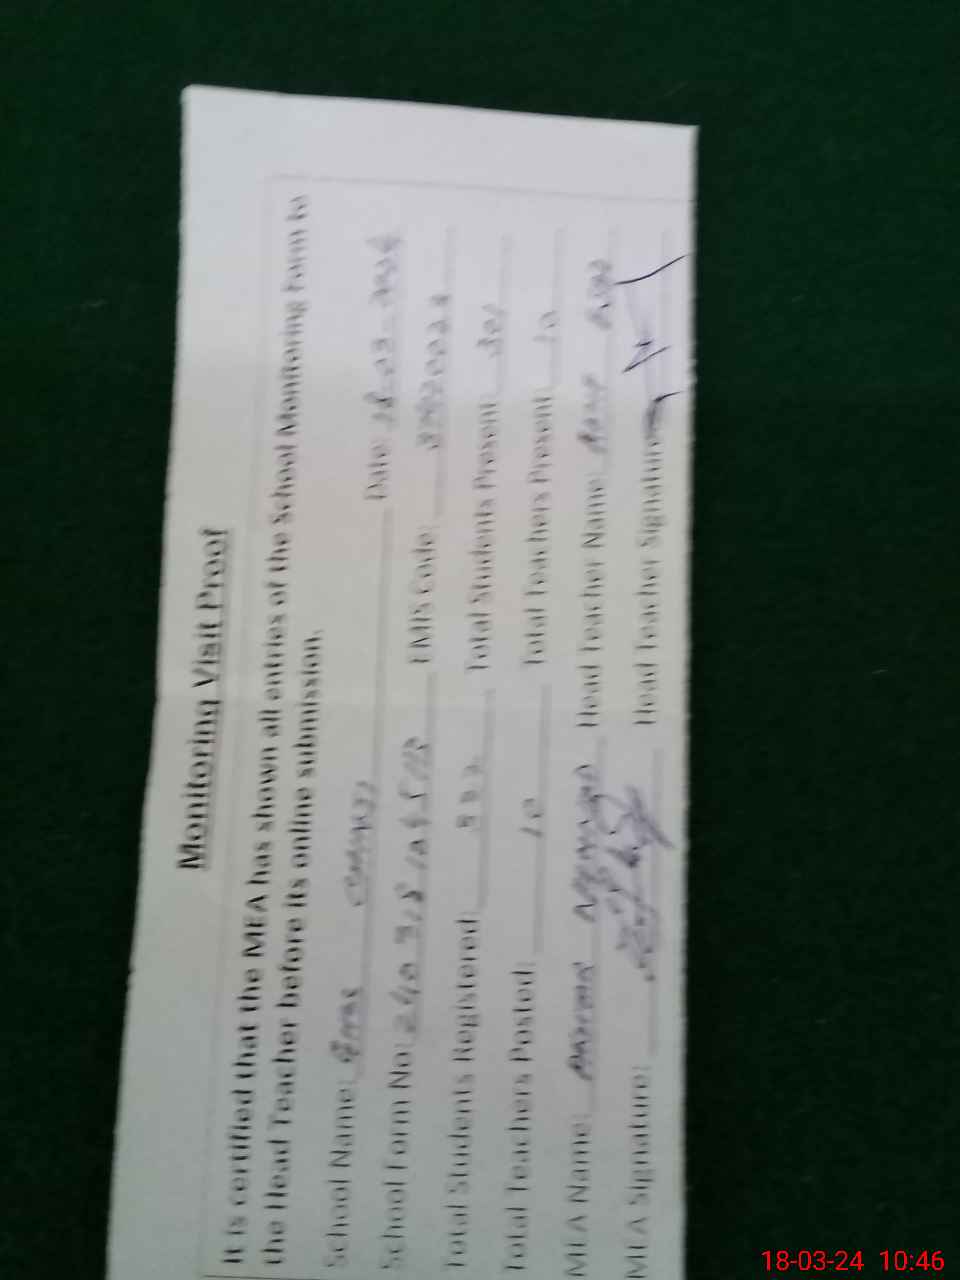 Monitoring Visit Proof
It is certified that the MEA has shown all entries of the School Monitoring Form to
the Head Teacher before its online submission.
School Name: Date: 18-03-2024
School Form No: EMIS Code:
Total Students Registered: Total Students Present: 301
Total Teachers Posted: 10 Total Teachers Present: 10
MEA Name: Head Teacher Name:
MEA Signature: Head Teacher Signature:
18-03-24 10:46